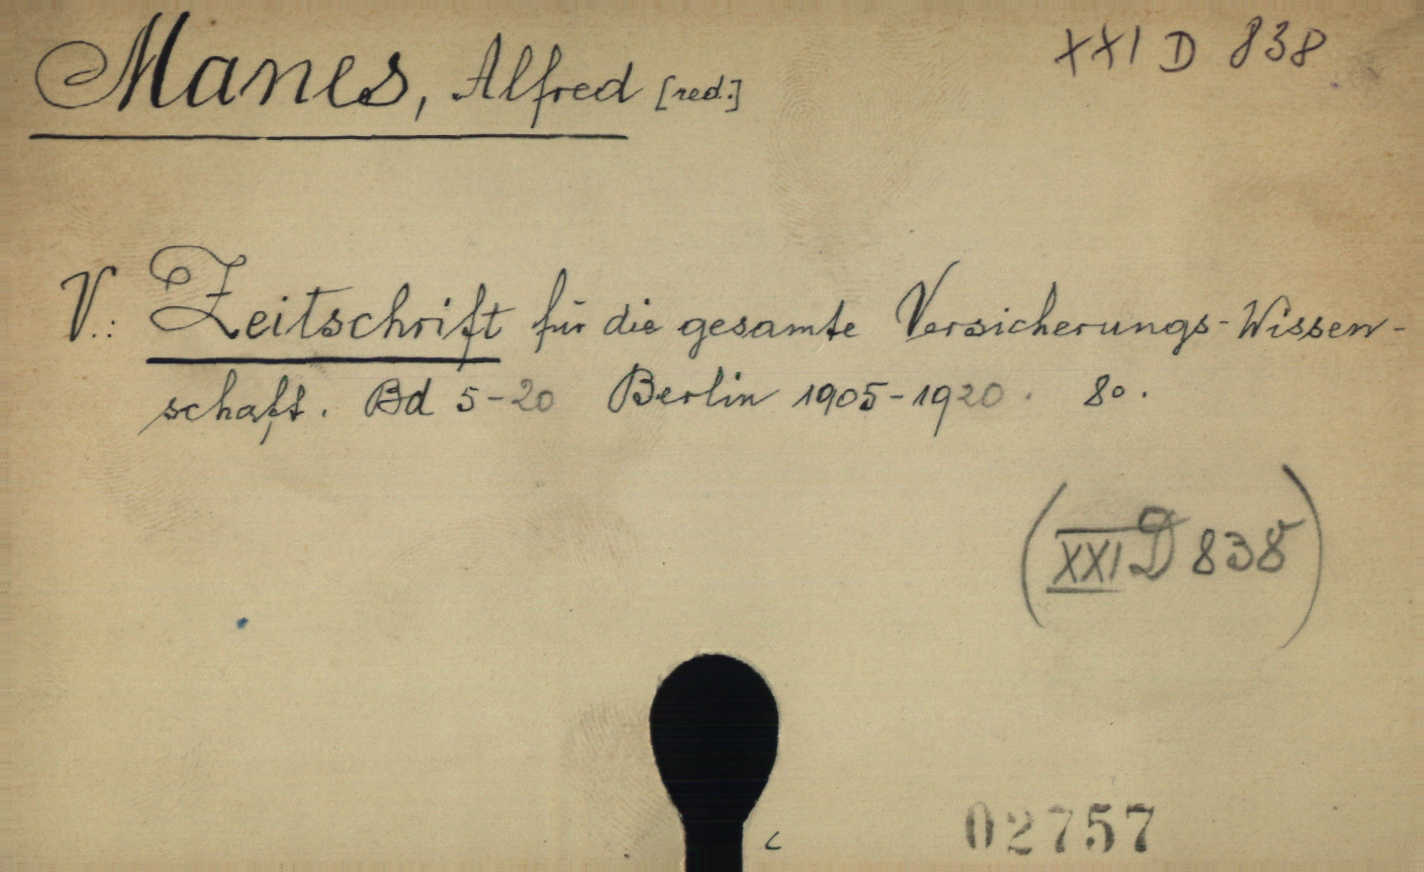 Manes, Alfred [red.]
XXI D 838
V.: Zeitschrift für die gesamte Versicherungs-Wissen-
schaft. Bd 5-20 Berlin 1905-1920. 8o.
(XXI D 838)
02757